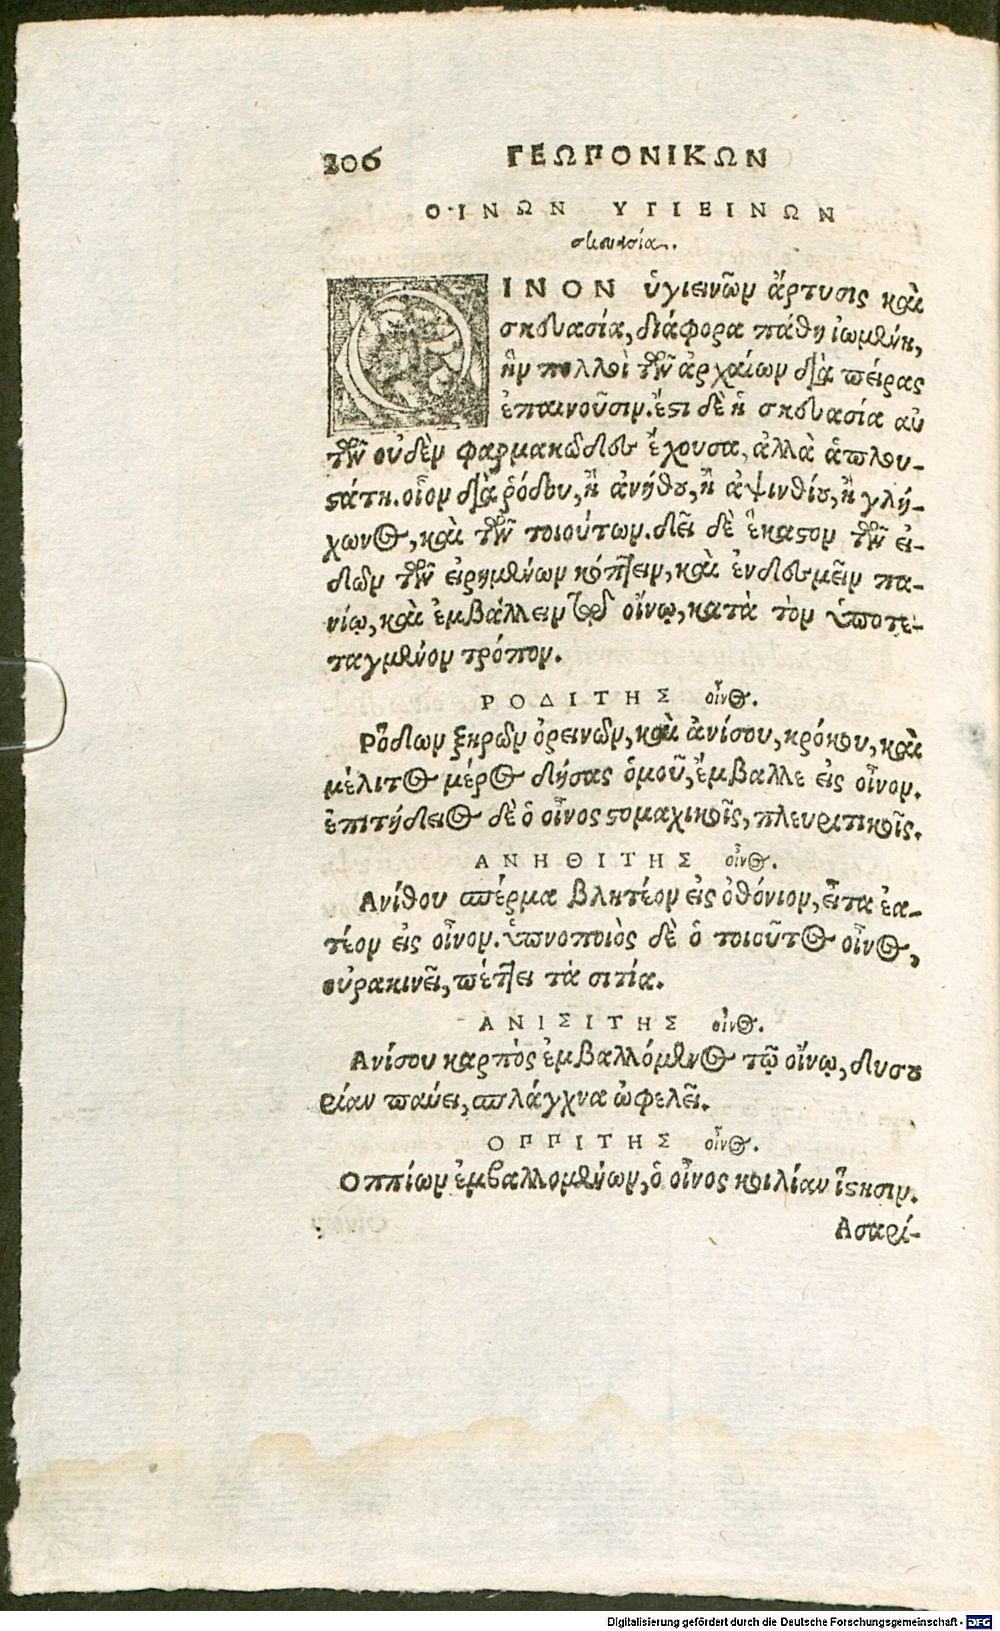 206 ΓΕΩΠΟΝΙΚΩΝ
ΟΙΝΩΝ ΥΓΙΕΙΝΩΝ
σκευασία.
ΟΙΝΟΝ ὑγιεινῶν ἄρτυσις καὶ
σκευασία, διάφορα πάθη ἰωμένη,
ἣν πολλοὶ τῶν ἀρχαίων διὰ πείρας
ἐπαινοῦσιν. ἔστι δὲ ἡ σκευασία αὐ
τῶν οὐδὲν φαρμακῶδες ἔχουσα, ἀλλὰ ἁπλου-
στάτη. οἷον διὰ ῥόδου, ἢ ἀνήθου, ἢ ἀψινθίου, ἢ γλή-
χωνος, καὶ τῶν τοιούτων. δεῖ δὲ ἕκαστον τῶν εἰ-
δῶν τῶν εἰρημένων κόπτειν, καὶ ἐνδεσμεῖν πα-
νίῳ, καὶ ἐμβάλλειν τῷ οἴνῳ, κατὰ τὸν ὑποτε-
ταγμένον τρόπον.
ΡΟΔΙΤΗΣ οἶνος.
Ρόδων ξηρῶν ὀρεινῶν, καὶ ἀνίσου, κρόκου, καὶ
μέλιτος μέρος δήσας ὁμοῦ, ἔμβαλλε εἰς οἶνον.
ἐπιτήδειος δὲ ὁ οἶνος στομαχικοῖς, πλευριτικοῖς.
ΑΝΗΘΙΤΗΣ οἶνος.
Ανίθου σπέρμα βλητέον εἰς ὀθόνιον, εἶτα ἐα-
τέον εἰς οἶνον. ὑπνοποιὸς δὲ ὁ τοιοῦτος οἶνος,
οὖρα κινεῖ, πέττει τὰ σιτία.
ΑΝΙΣΙΤΗΣ οἶνος.
Ανίσου καρπὸς ἐμβαλλόμενος τῷ οἴνῳ, δυσου
ρίαν παύει, σπλάγχνα ὠφελεῖ.
ΟΠΠΙΤΗΣ οἶνος.
Οππίων ἐμβαλλομένων, ὁ οἶνος κοιλίαν ἵστησιν.
Ασαρί-
Digitalisierung gefördert durch die Deutsche Forschungsgemeinschaft - DFG